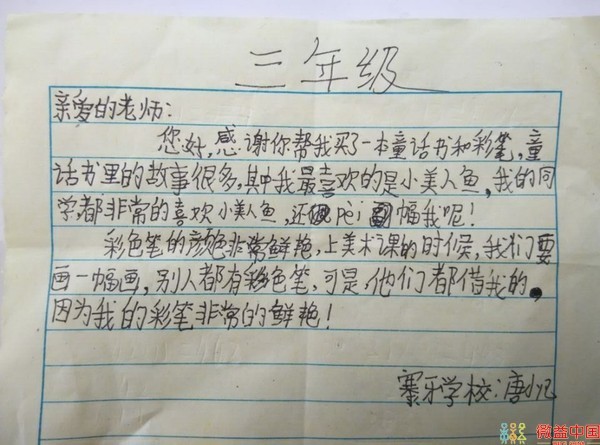 三年级
亲爱的老师:
您好,感谢你帮我买了一本童话书和彩笔,童
话书里的故事很多,其中我最喜欢的是小美人鱼,我的同
学都非常的喜欢小美人鱼,还pei幅我呢!
彩色笔的颜色非常鲜艳,上美术课的时候,我们要
画一幅画,别人都有彩色笔,可是,他们都借我的,
因为我的彩笔非常的鲜艳!
寨牙学校:唐小
微益中国